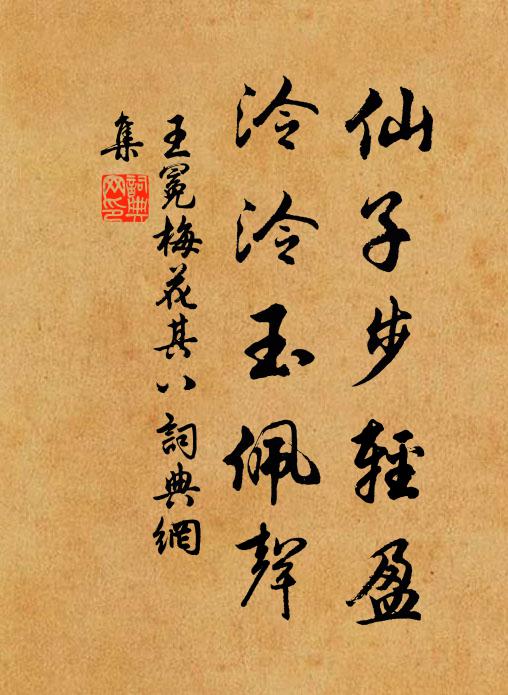 仙子步輕盈
泠泠玉佩聲
王冕梅花其八詞典網
集
詞典網印